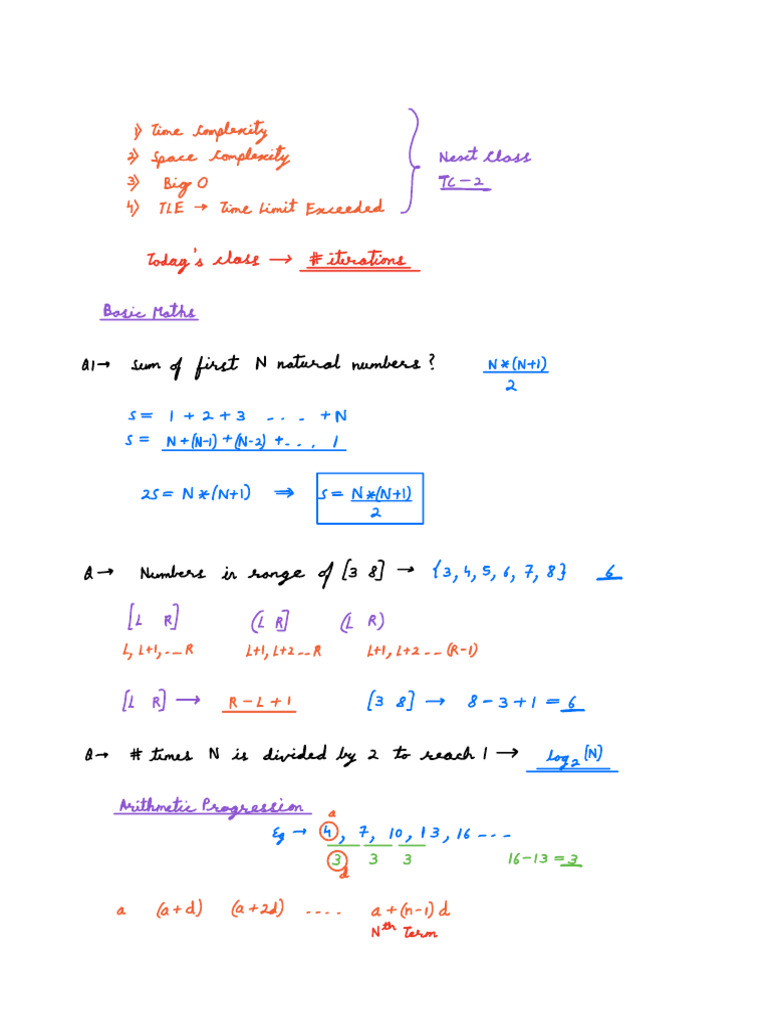 1) Time Complexity
2) Space Complexity
3) Big O
4) TLE → Time Limit Exceeded
Next Class
TC-2
Today's class → # iterations
Basic Maths
Q1 → Sum of first N natural numbers? N*(N+1)
2
S = 1 + 2 + 3 .... + N
S = N+(N-1)+(N-2)+... 1
2S = N*(N+1) ⇒ S = N*(N+1)
2
Q → Numbers in range of [3 8] → {3, 4, 5, 6, 7, 8} 6
[L R] (L R] (L R)
L, L+1, ... R L+1, L+2 ... R L+1, L+2 ... (R-1)
[L R] → R-L+1 [3 8] → 8-3+1 = 6
Q → # times N is divided by 2 to reach 1 → log₂(N)
Arithmetic Progression
a
Eg → 4, 7, 10, 13, 16 ....
3 3 3 16-13 = 3
d
a (a+d) (a+2d) .... a+(n-1)d
Nth Term